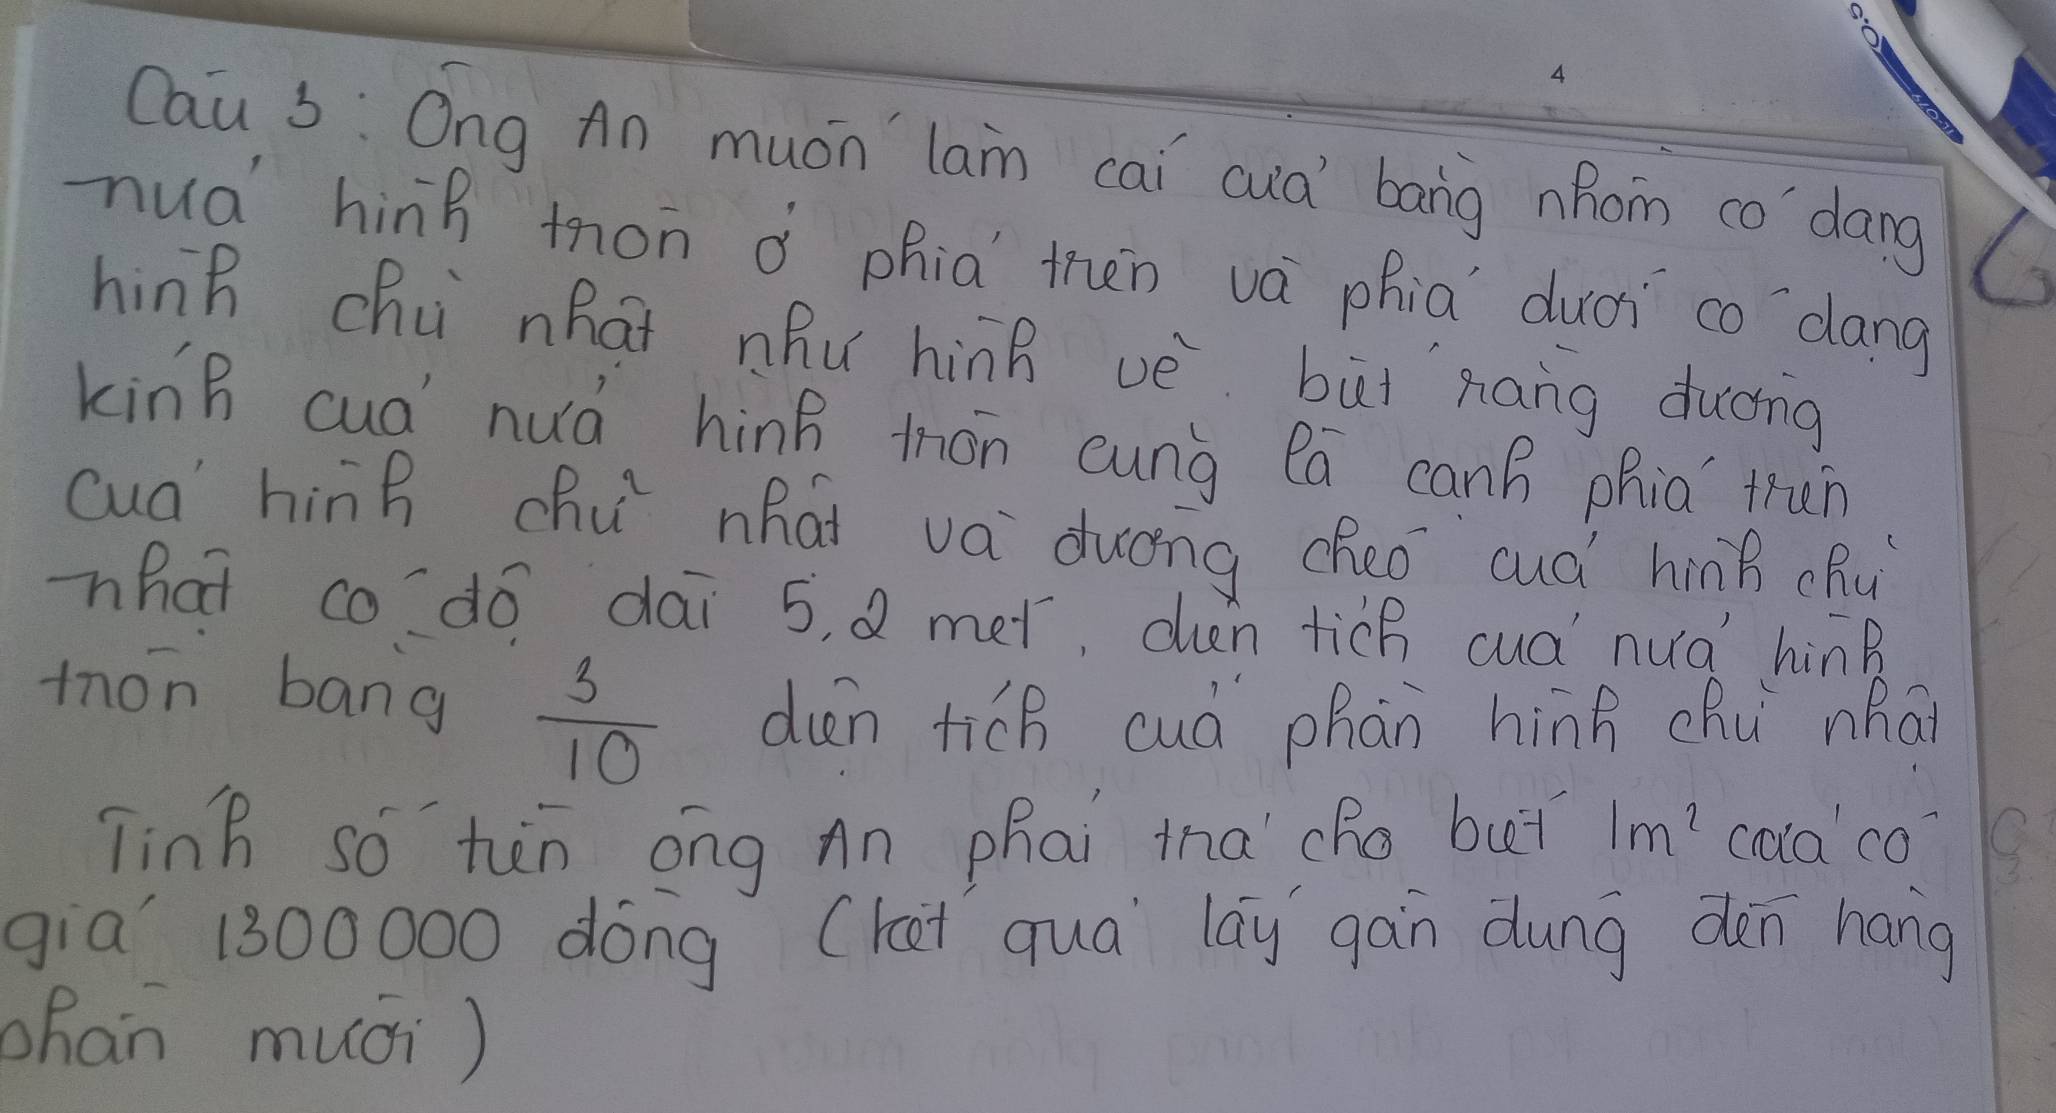 4
Câu 3: Ông An muốn làm cái cửa bằng nhôm có dạng
nửa hình tròn ở phía trên và phía dưới có dạng
hình chữ nhật như hình vẽ. biết rằng đường
kính của nửa hình tròn cũng là cạnh phía trên
của hình chữ nhật và đường chéo của hình chữ
nhật có độ dài 5,2 mét, diện tích của nửa hình
tròn bằng 3/10 diện tích của phần hình chữ nhật
Tính số tiền ông An phải trả cho biết 1m² cửa có
giá 1300000 đồng (kết quả lấy gần đúng đến hàng
phần mười)